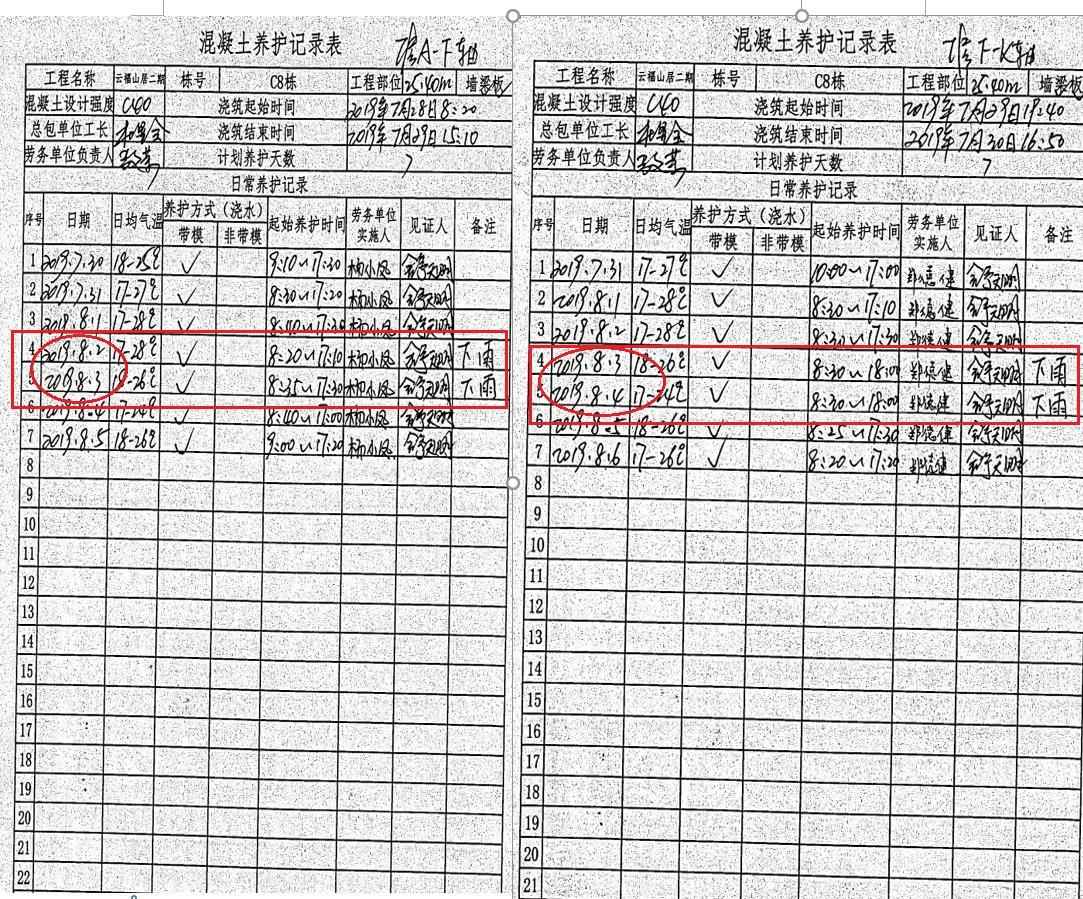 混凝土养护记录表 A-F轴
工程名称 云福山居二期 栋号 C8栋 工程部位 25.40m 墙梁板
混凝土设计强度 C40 浇筑起始时间 2019年7月28日8:20
总包单位工长 浇筑结束时间 2019年7月29日15:10
劳务单位负责人 计划养护天数 7
日常养护记录
序号 日期 日均气温 养护方式（浇水） 起始养护时间 劳务单位实施人 见证人 备注
带模 非带模
1 2019.7.30 18-25℃ ✓ 9:10~17:30 杨小凤
2 2019.7.31 17-27℃ ✓ 8:30~17:20 杨小凤
3 2019.8.1 17-28℃ ✓ 8:40~17:30 杨小凤
4 2019.8.2 17-28℃ ✓ 8:20~17:10 杨小凤 下雨
5 2019.8.3 18-26℃ ✓ 8:35~17:30 杨小凤 下雨
6 2019.8.4 17-24℃ ✓ 8:40~17:00 杨小凤
7 2019.8.5 18-26℃ ✓ 9:00~17:20 杨小凤
8
9
10
11
12
13
14
15
16
17
18
19
20
21
22
混凝土养护记录表 F-K轴
工程名称 云福山居二期 栋号 C8栋 工程部位 25.40m 墙梁板
混凝土设计强度 C40 浇筑起始时间 2019年7月29日19:40
总包单位工长 浇筑结束时间 2019年7月30日16:50
劳务单位负责人 计划养护天数 7
日常养护记录
序号 日期 日均气温 养护方式（浇水） 起始养护时间 劳务单位实施人 见证人 备注
带模 非带模
1 2019.7.31 17-27℃ ✓ 10:00~17:00 郑德健
2 2019.8.1 17-28℃ ✓ 8:30~17:10 郑德健
3 2019.8.2 17-28℃ ✓ 8:30~17:30 郑德健
4 2019.8.3 18-26℃ ✓ 8:30~18:00 郑德健 下雨
5 2019.8.4 17-24℃ ✓ 8:30~18:00 郑德健 下雨
6 2019.8.5 18-26℃ ✓ 8:25~17:30 郑德健
7 2019.8.6 17-26℃ ✓ 8:20~17:20 郑德健
8
9
10
11
12
13
14
15
16
17
18
19
20
21